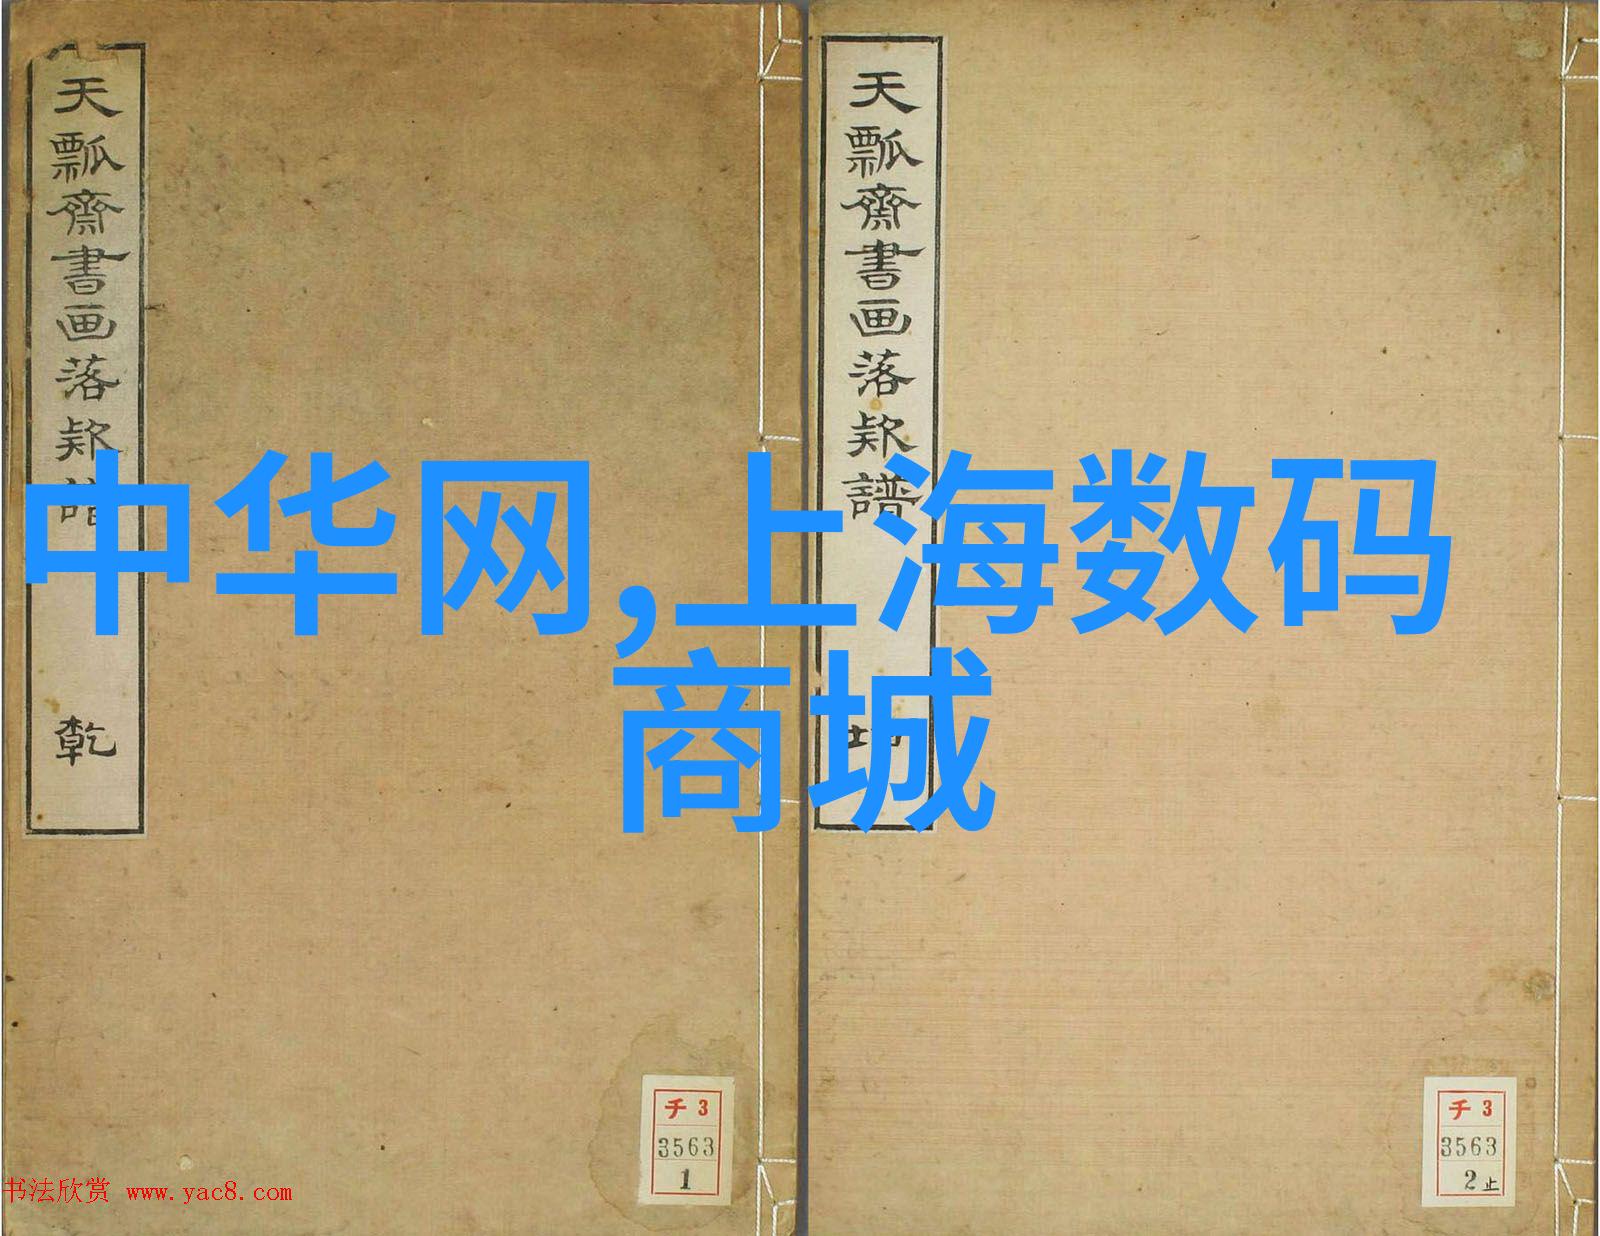 天瓢齋書画落款譜
乾
天瓢齋書画落款譜
中华网,上海数码
商城
チ3
3563
1
チ3
3563
2止
书法欣赏 www.yac8.com